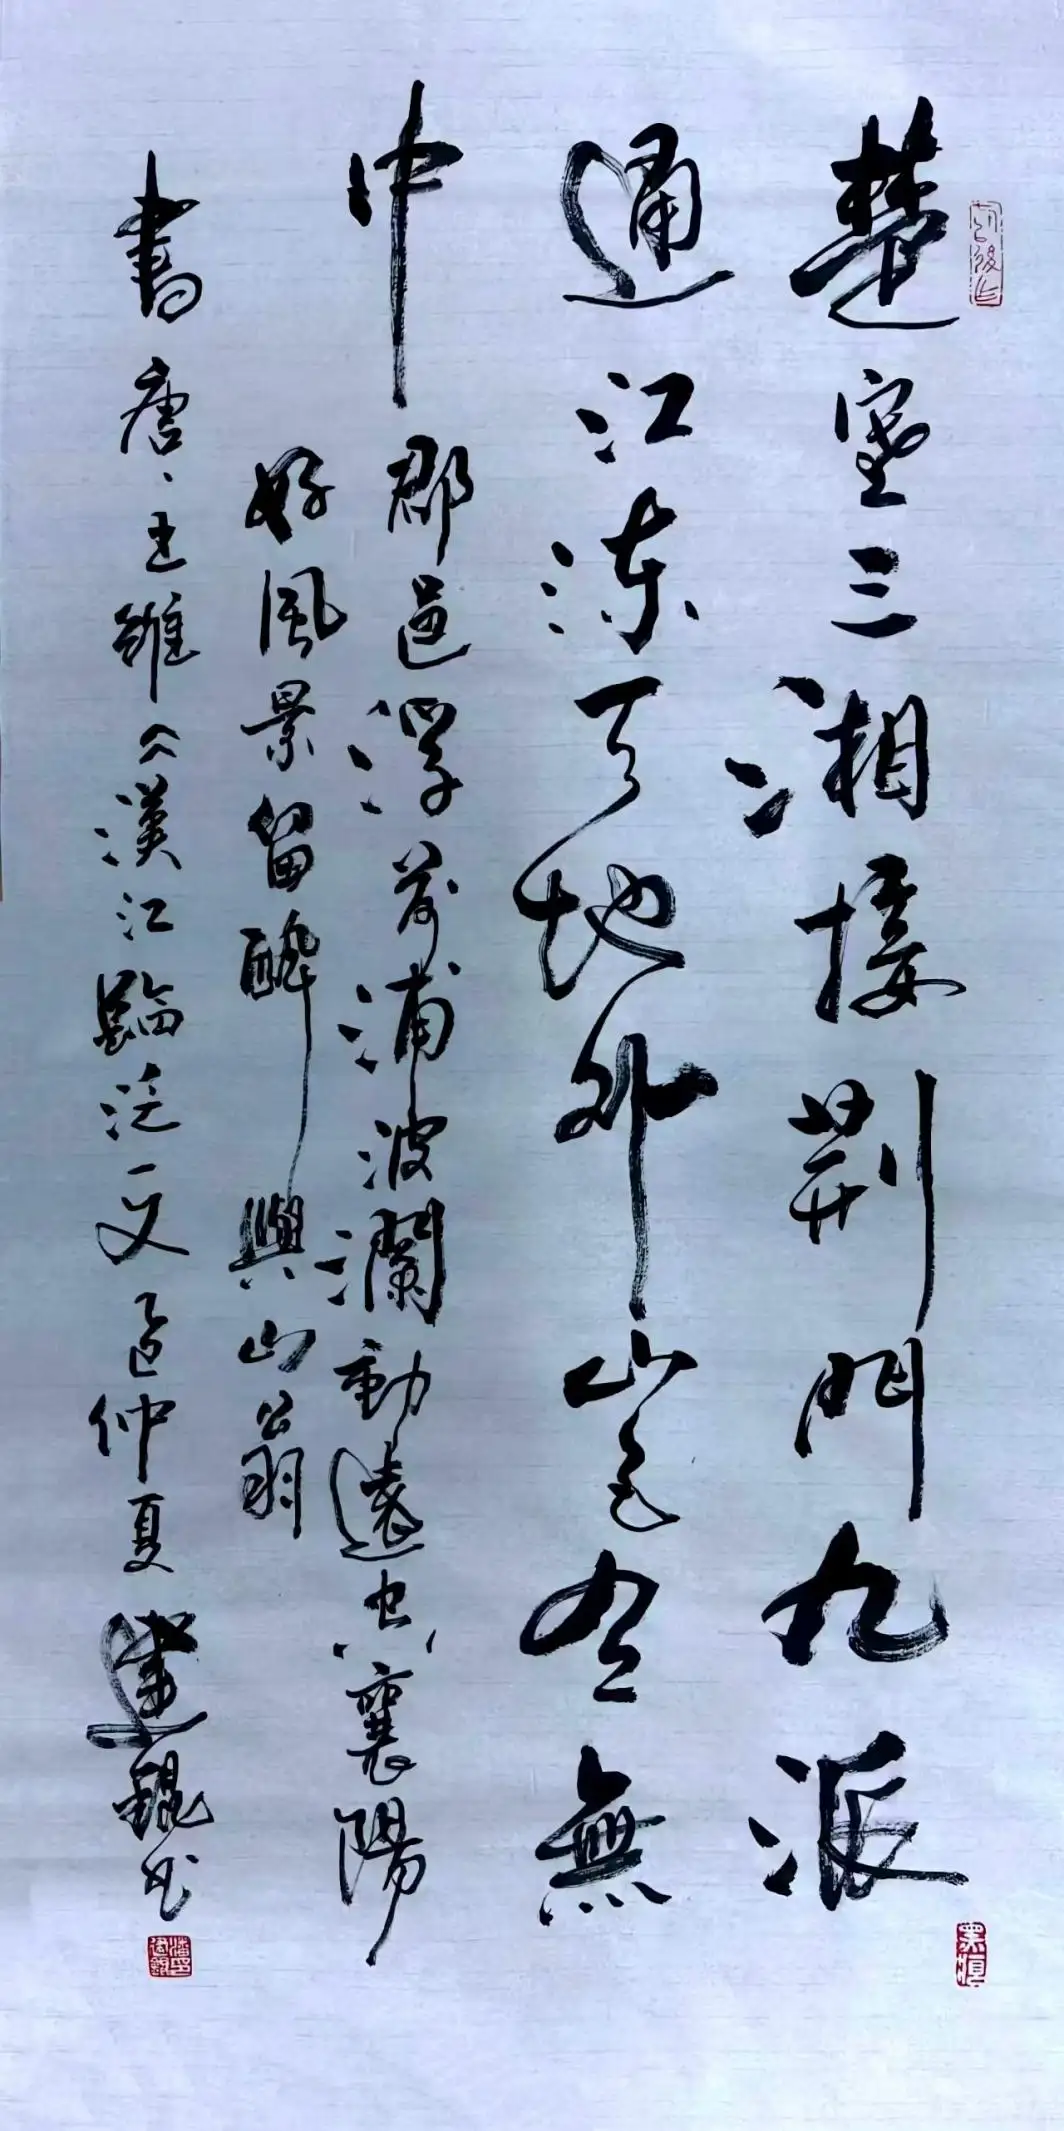 楚塞三湘接荊門九派
通江流天地外山色有無
中郡邑浮前浦波瀾動遠空襄陽
好風景留醉與山翁
書唐、王維《漢江臨泛》文乙巳仲夏建錕書